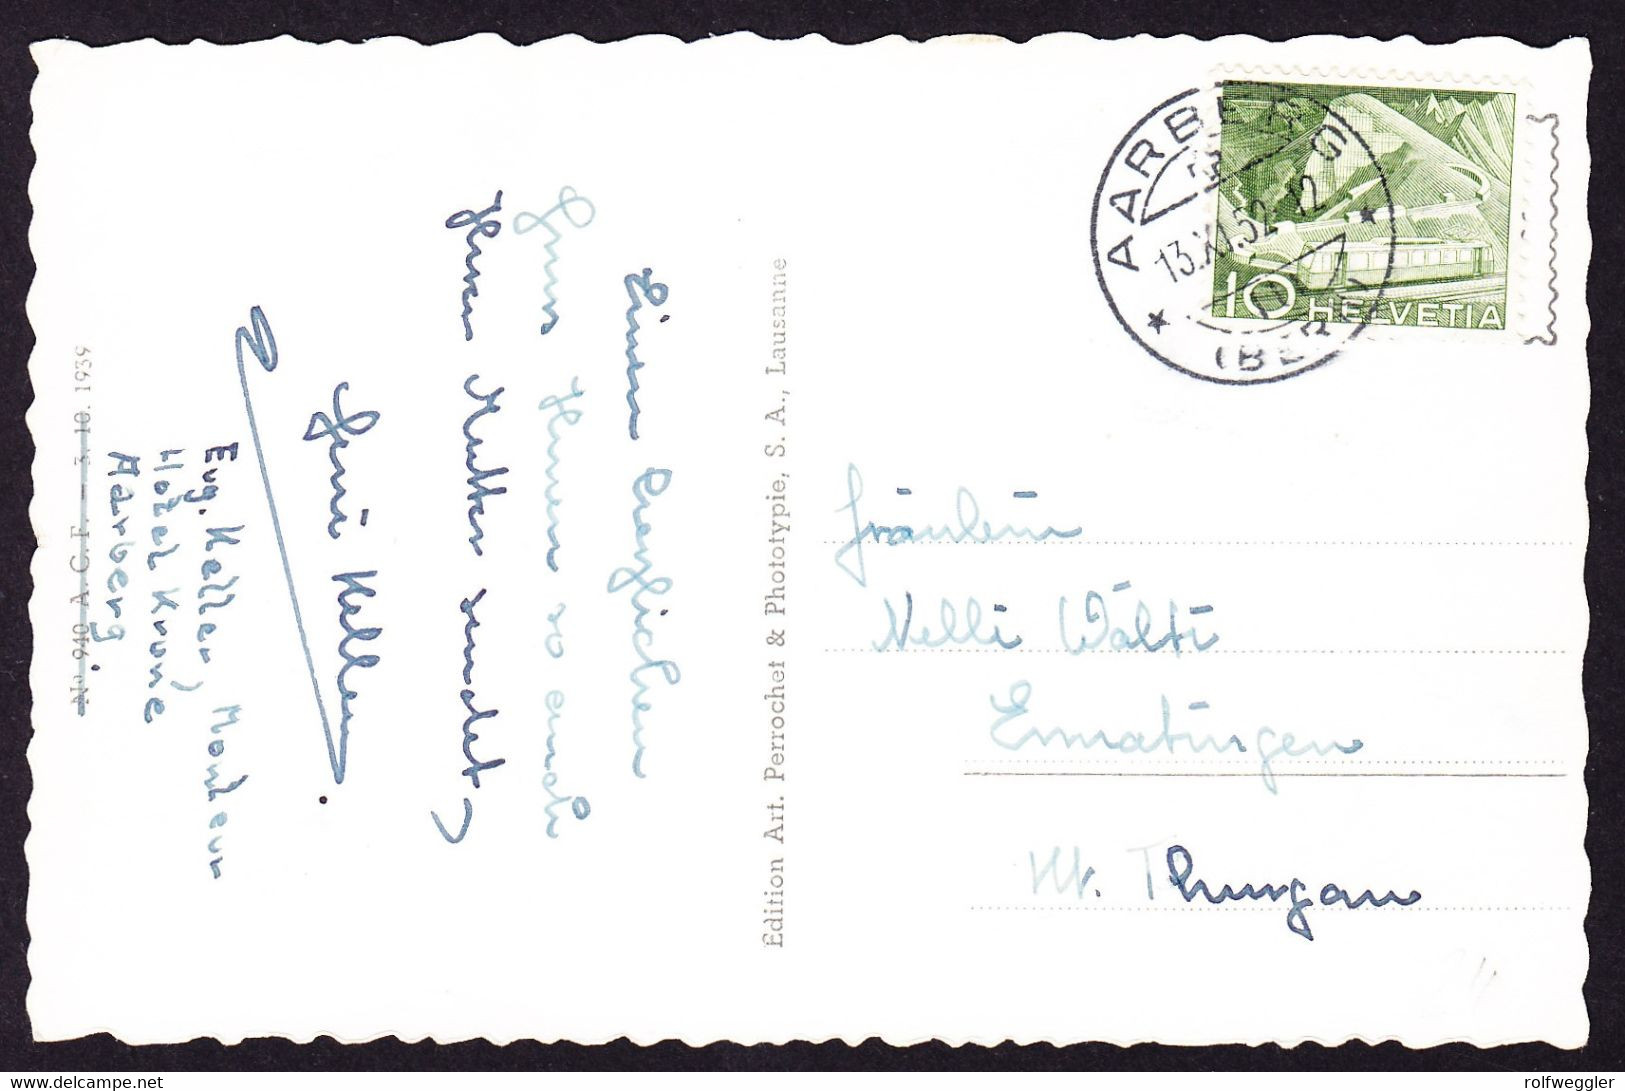 Einen herzlichen
Gruss Ihnen so auch
Ihrer Mutter sendet,
Geni Keller.
Eug. Keller, Monteur
Hotel Krone
Aarberg.
No 940 A. C. F. — 3. 10. 1939
Edition Art. Perrochet & Phototypie, S. A., Lausanne
AARBERG
13.XI.52-12
(BERN)
10 HELVETIA
Fräulein
Nelli Wälti
Ermatingen
Kt. Thurgau
rolfweggler